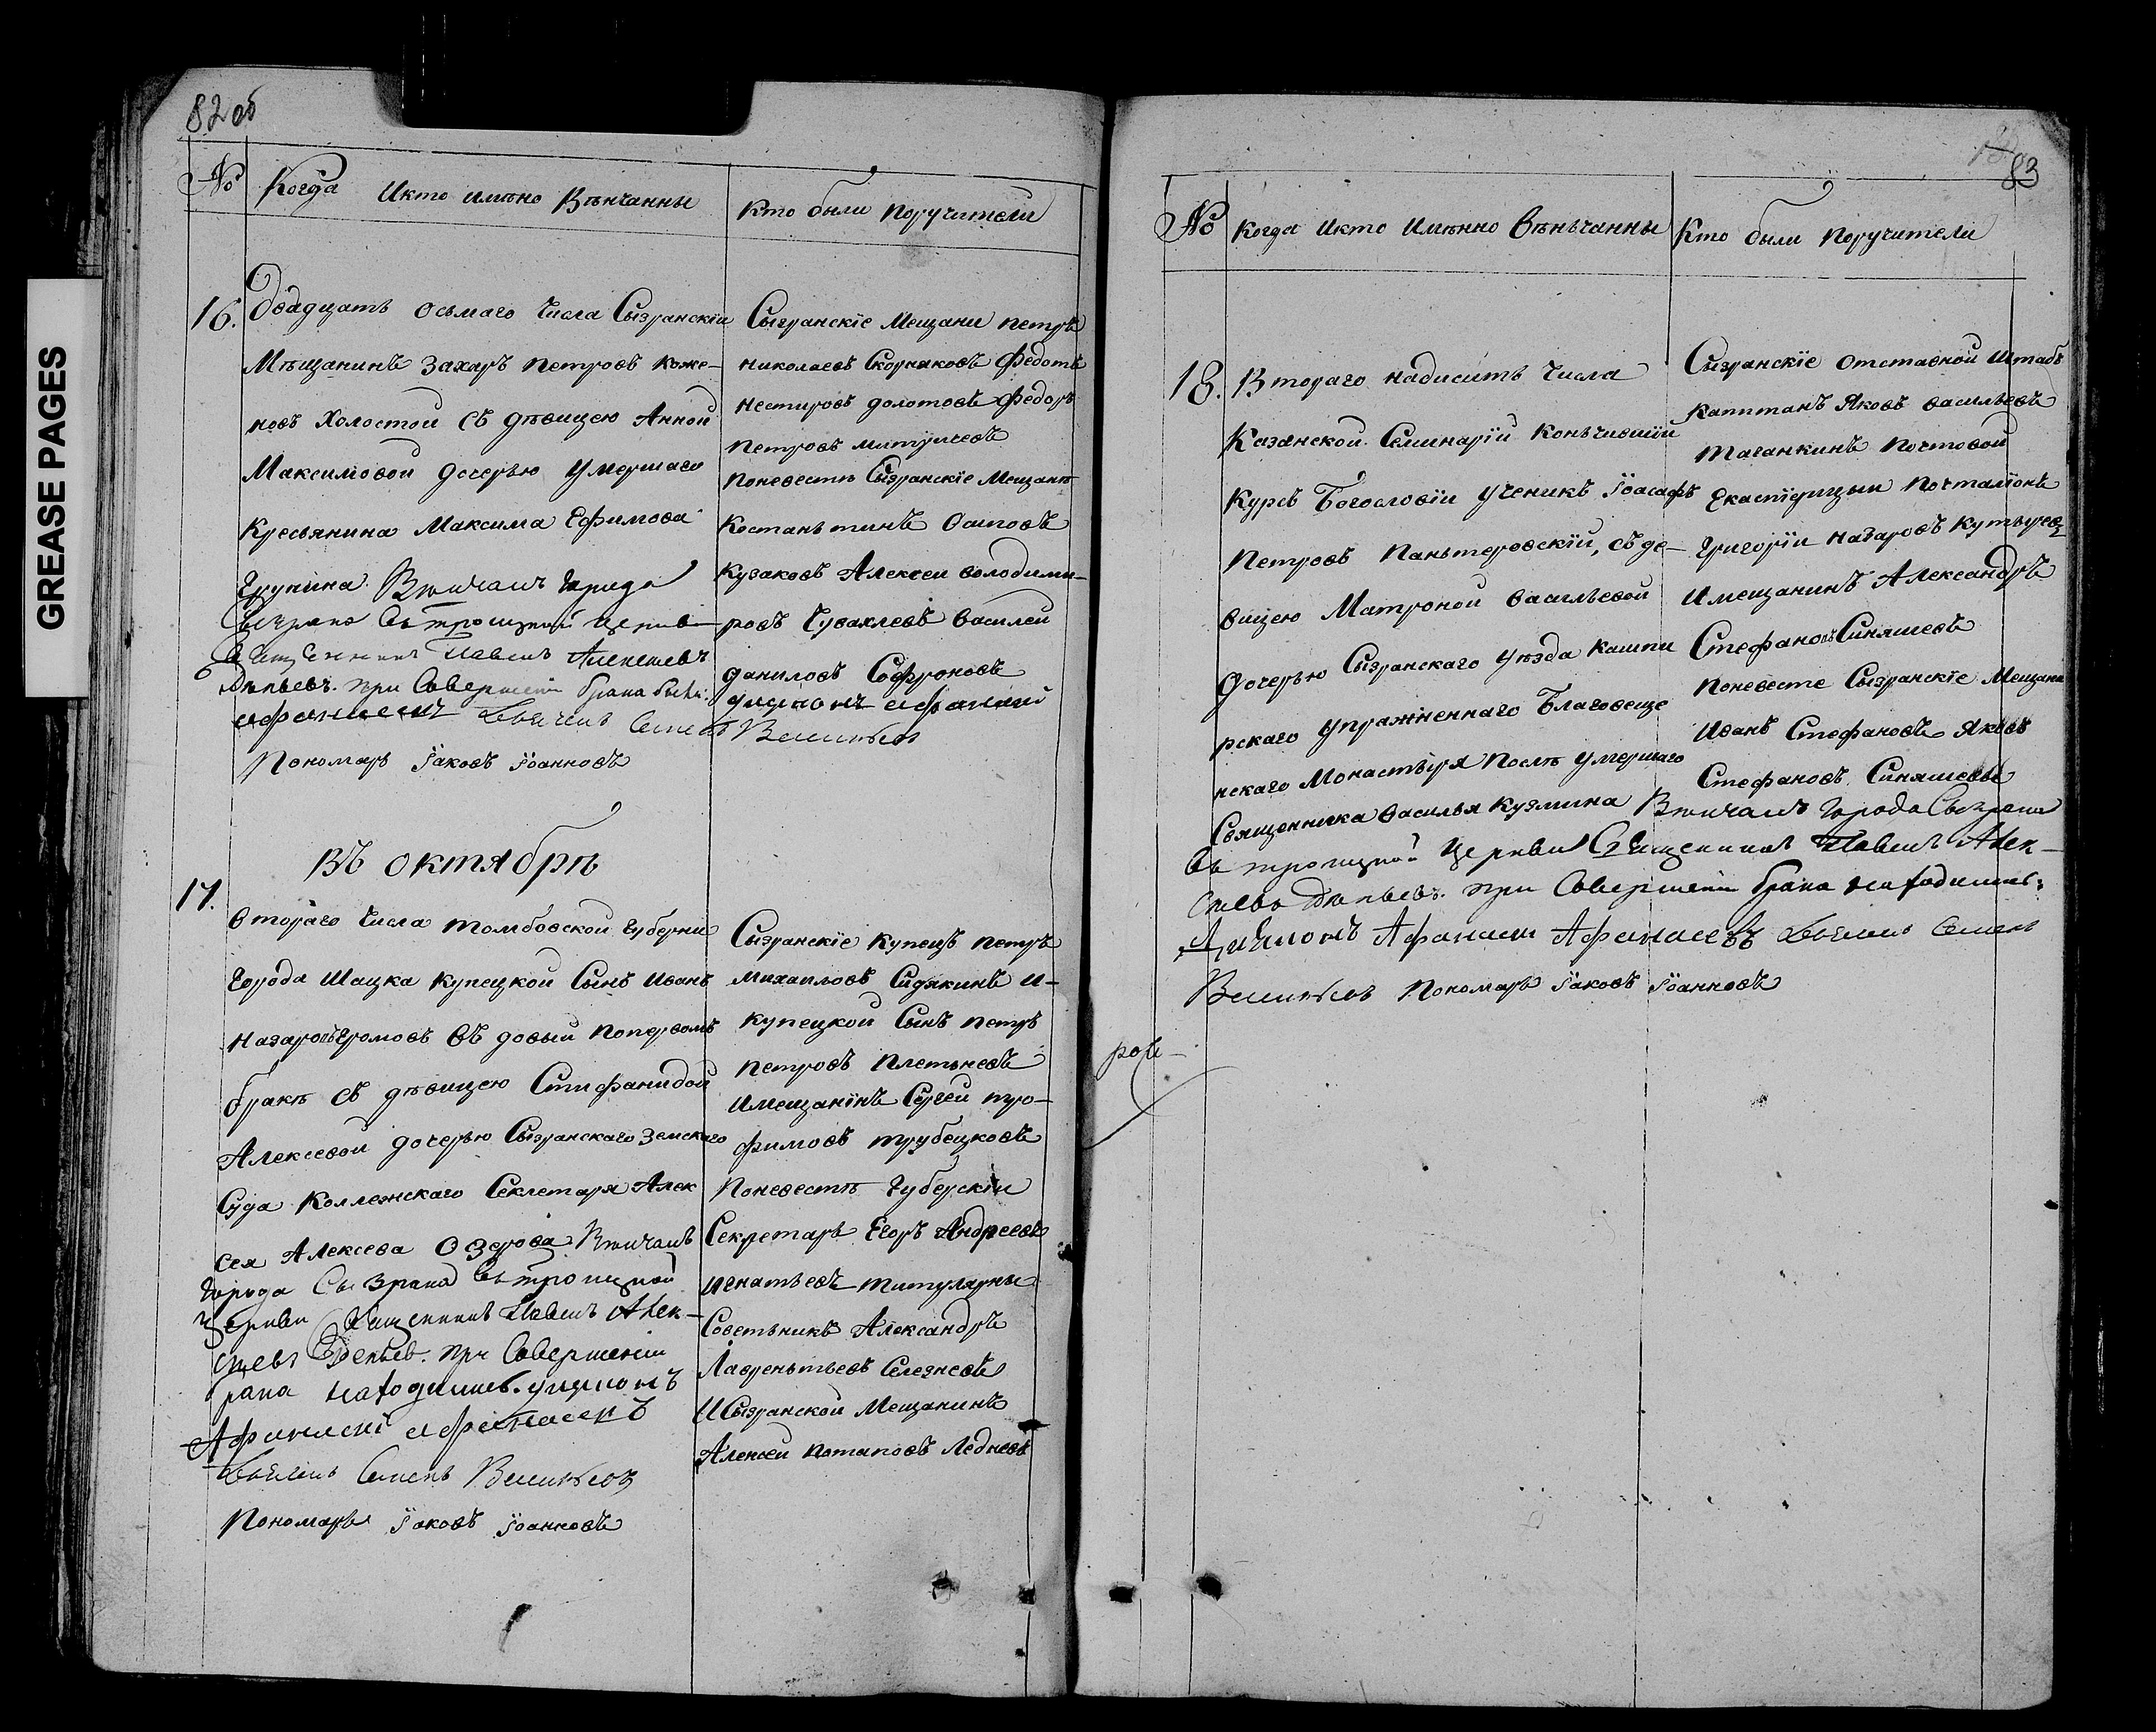 GREASE PAGES
82 об
№
Когда Икто имѣно Вѣнчанны
Кто были поручители
16.
Двадцать осьмаго числа Сызранскiи
Мѣщанинъ Захаръ Петровъ Коже-
новъ Холостой съ дѣвицею Анной
Максимовой дочерью умершаго
Кресьянина Максима Ефимова
Вѣнчалъ города
Сызрана въ троицкой церкви
Священникъ Павелъ Алексѣевъ
при Совершенiи брака были
Дьячекъ Семенъ Васильевъ
Пономарь Iаковъ Iоанновъ
Сызранскiе Мещани петръ
Николаевъ Скорняковъ Федотъ
Нестировъ долотовъ Федоръ
Петровъ
Поневестѣ Сызранскiе Мещанѣ
Костаньтинъ Осиповъ
Кузаковъ Алексеи володими-
ровъ Чувахлевъ василеи
даниловъ Софроновъ
Въ октябрѣ
17.
втораго числа томбовской губернiи
города Шацка купецкой Сынъ Иванъ
Назаровъ Громовъ въ довый поперьвомъ
бракѣ съ дѣвицею Стифанидой
Алексевой дочерью Сызранскаго Земскаго
Суда Коллежскаго Секлетаря Алек
сея Алексева Озерова Вѣнчалъ
города Сызрана въ троицкой
Церкви Священникъ Павелъ Алек-
при Совершенiи
брака находились дьяконъ
Афанасей Афанасевъ
Дьячекъ Семенъ Васильевъ
Пономарь Iаковъ Iоанновъ
Сызранскiе Купецъ петръ
михаиловъ Сидякинъ и-
купецкой Сынъ петръ
петровъ Плетьневъ
имещанiнъ Сергеи тро-
фимовъ трубецковъ
Поневестѣ губерскiи
Секретарь Егоръ Андреевъ
игнатьевъ титулярны
Советьникъ Александръ
Лавреньтьевъ Селезневъ
ИСызранской Мещанинъ
Алексеи потаповъ Ледневъ
83
№
Когда Икто Имѣнно Вѣньчанны
Кто были Поручители
18.
Втораго надисить числа
Казанской Семинарiи Коньчившiи
Курсъ Богословiи ученикъ Iоасафъ
Петровъ Паньтеровскiи, съ де-
вицею Матроной васильевой
дочерью Сызранскаго уѣзда кашпи
рскаго упражненнаго Благовеще
нскаго Монастыря послѣ умершаго
Священника василья Кузмина Вѣнчалъ города Сызрана
въ троицкой церкви Священникъ Павелъ Алек-
при Совершенiи брака находились:
Дьяконъ Афанасеи Афанасевъ Дьячекъ Семенъ
Васильевъ Пономарь Iаковъ Iоанновъ
Сызранскiе отставной штабъ
каптанъ Яковъ васильевъ
таганкинъ почтовой
Екаспедицыи почталiонъ
григорiи назаровъ
имещанинъ Александръ
Стефановъ Синяшевъ
Поневесте Сызранскiе Мещани
Иванъ Стефановъ Яковъ
Стефановъ Синяшевы